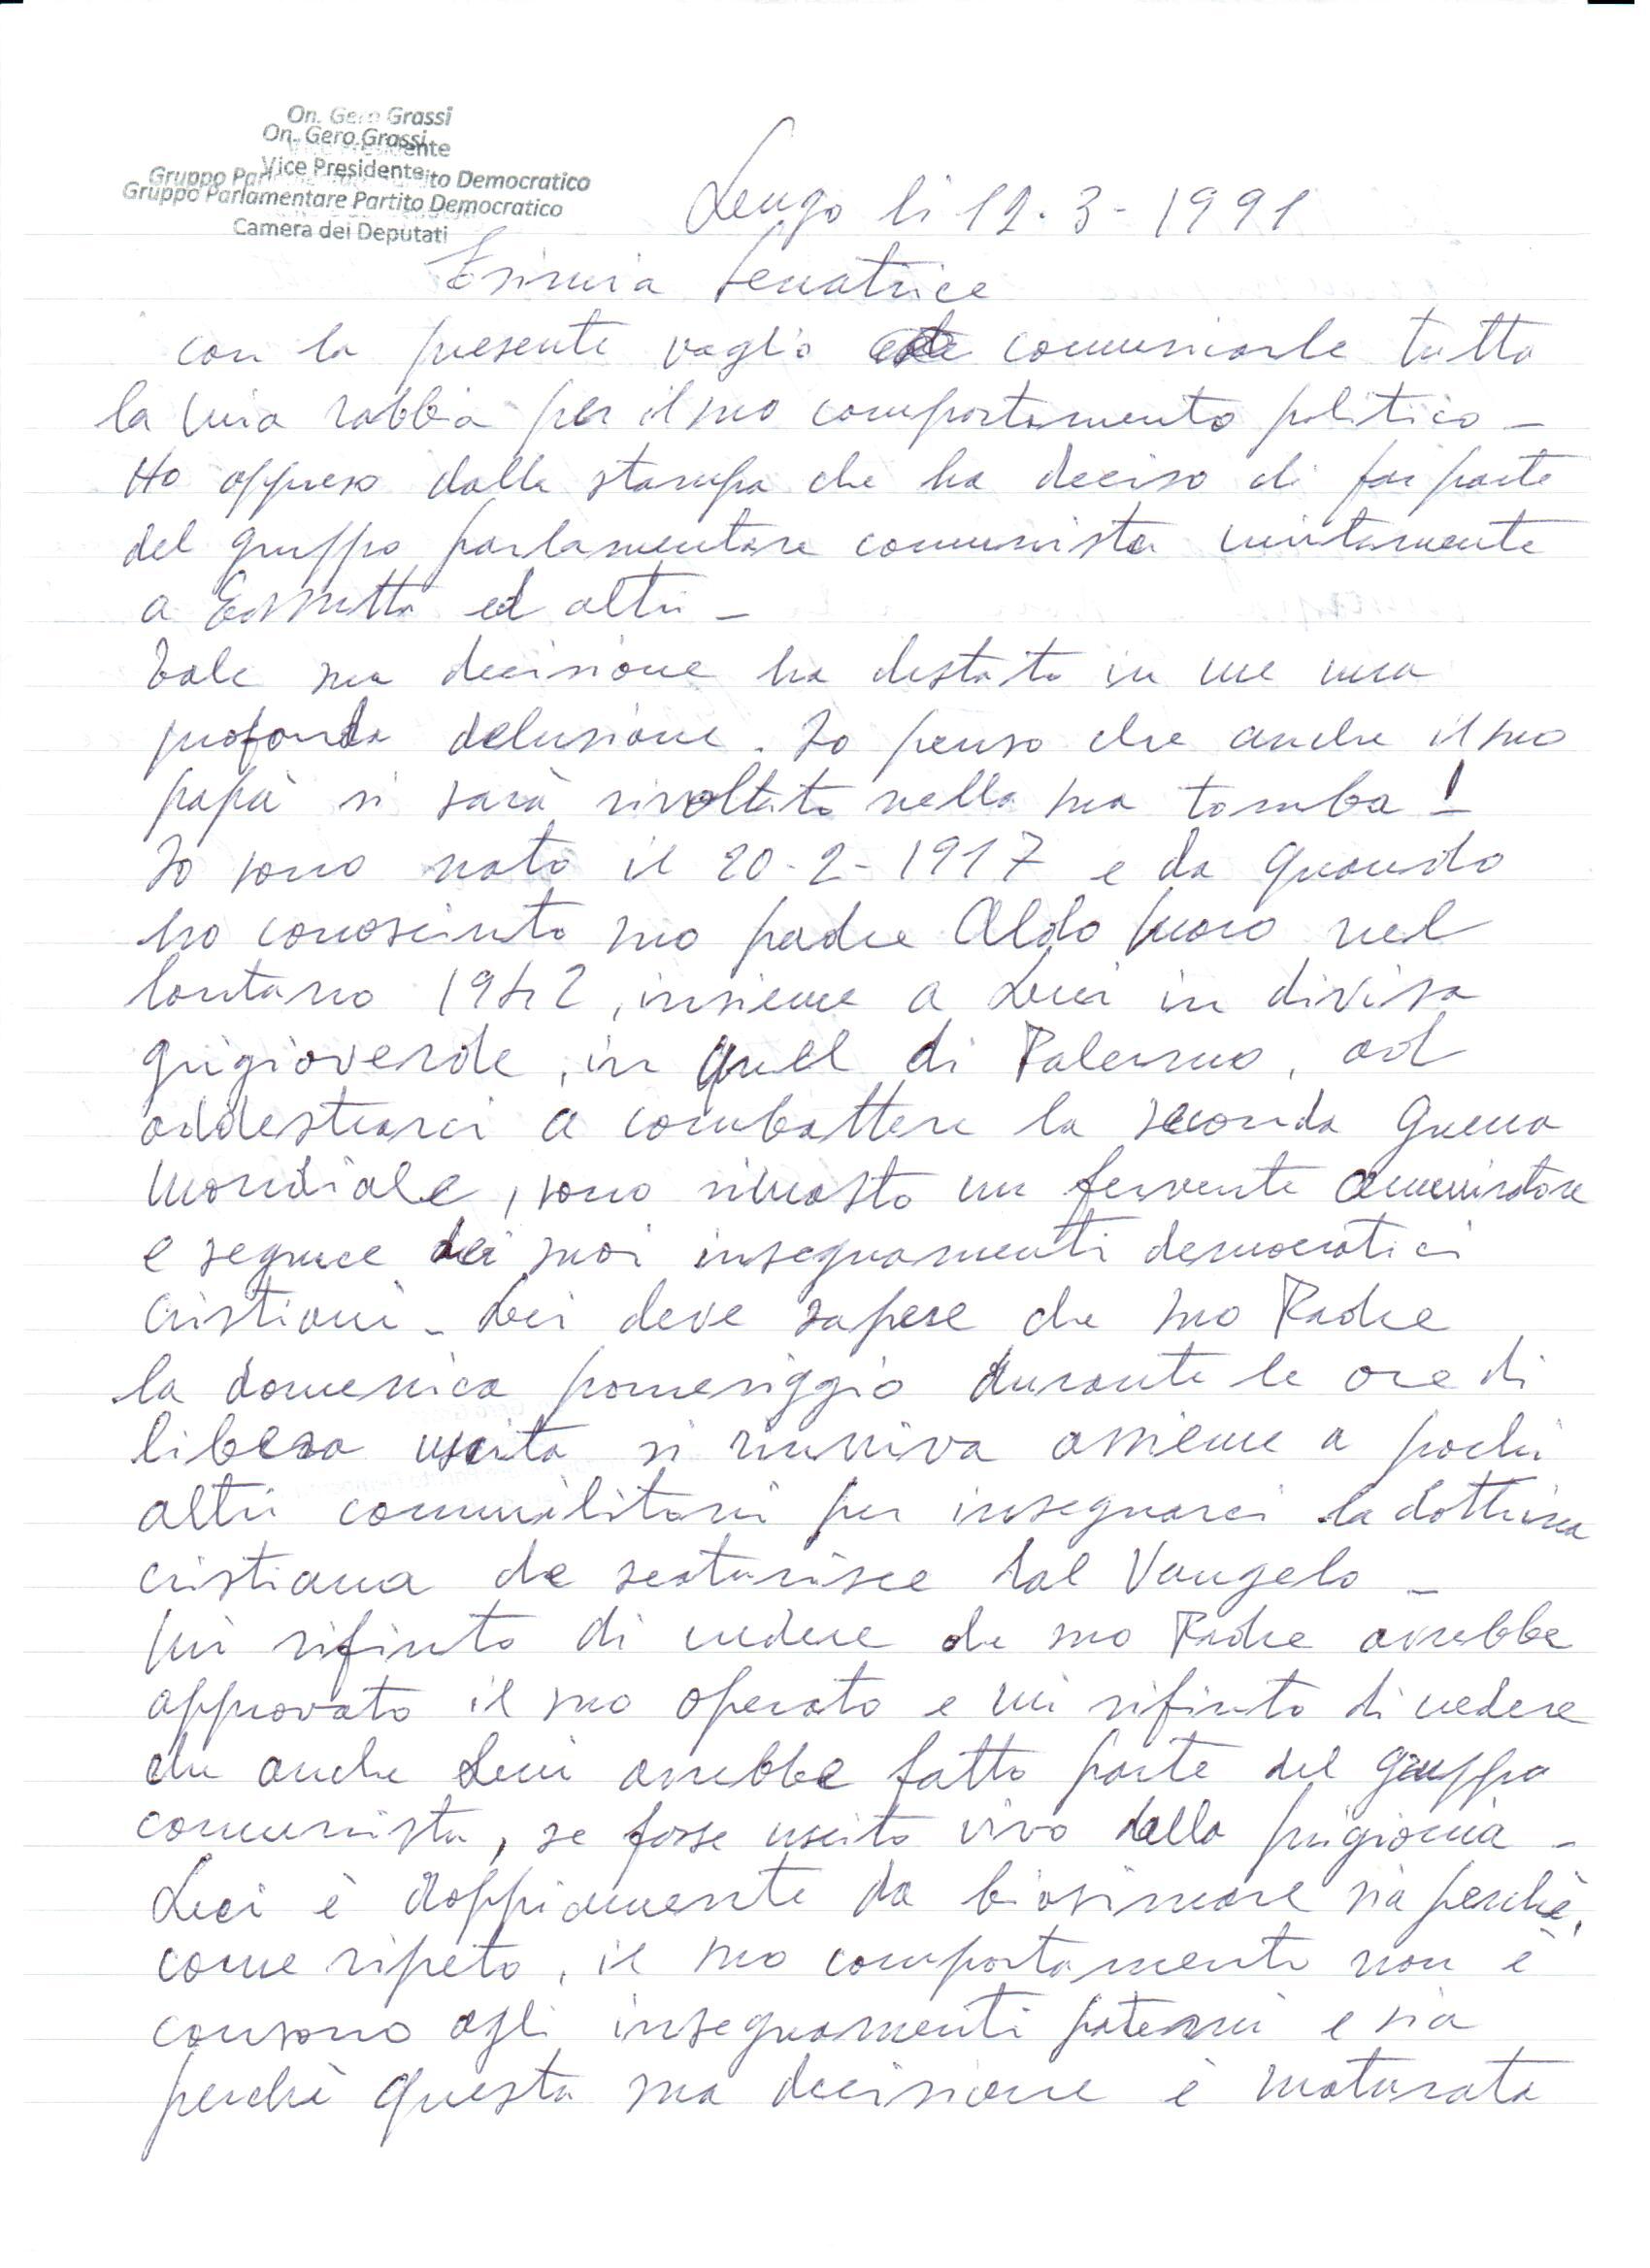 On. Gero Grassi
On. Gero Grassi
Vice Presidente
Vice Presidente
Gruppo Parlamentare Partito Democratico
Gruppo Parlamentare Partito Democratico
Camera dei Deputati
Lengo li 12-3-1991
Esimia Senatrice
con la presente voglio comunicarle tutta
la mia rabbia per il suo comportamento politico -
Ho appreso dalla stampa che ha deciso di far parte
del gruppo parlamentare comunista unitamente
a Cossutta ed altri -
Tale sua decisione ha destato in me una
profonda delusione. Io penso che anche il suo
papà si sarà rivoltato nella sua tomba!
Io sono nato il 20-2-1917 e da quando
ho conosciuto suo padre Aldo Moro nel
lontano 1942, insieme a Lui in divisa
grigioverde, in quel di Palermo, ad
addestrarci a combattere la seconda guerra
mondiale, sono rimasto un fervente ammiratore
e seguace dei suoi insegnamenti democratici
cristiani - Lei deve sapere che suo Padre
la domenica pomeriggio durante le ore di
libera uscita si riuniva assieme a pochi
altri commilitoni per insegnarci la dottrina
cristiana che scaturisce dal Vangelo -
Mi rifiuto di credere che suo Padre avrebbe
approvato il suo operato e mi rifiuto di credere
che anche Lui avrebbe fatto parte del gruppo
comunista, se fosse uscito vivo dalla prigionia -
Lei è doppiamente da biasimare sia perchè,
come ripeto, il suo comportamento non è
consono agli insegnamenti paterni e sia
perchè questa sua decisione è maturata